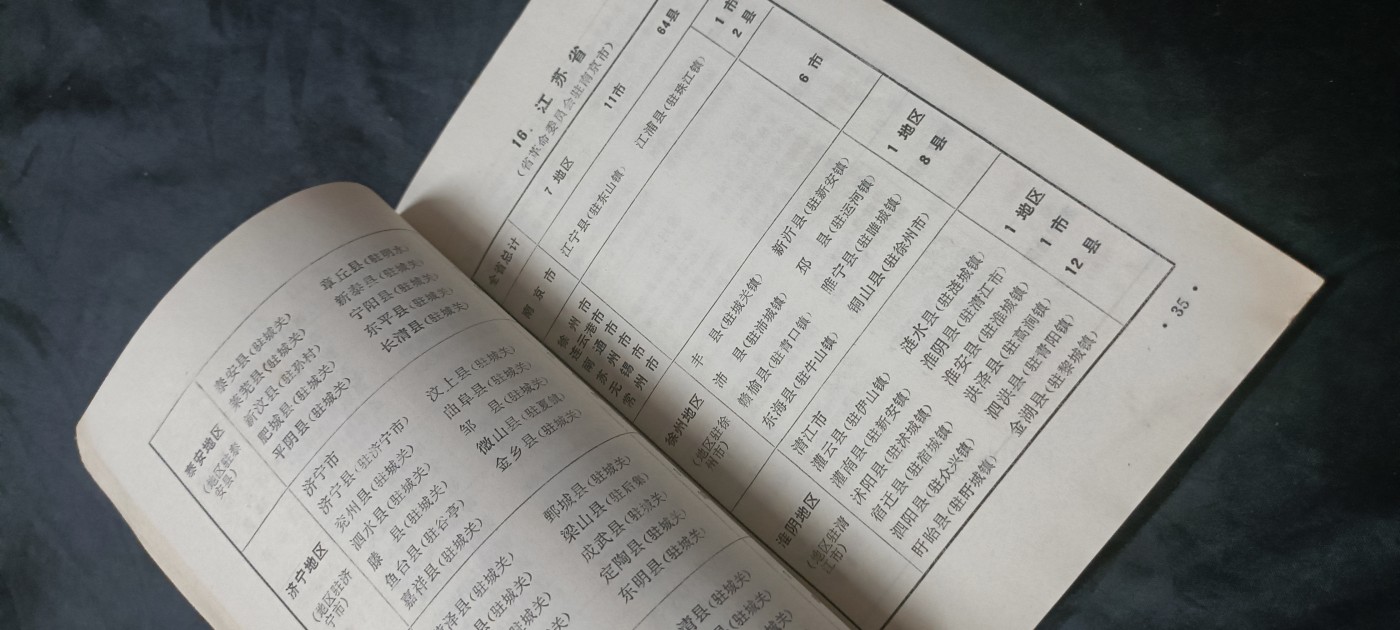 泰安地区
(地区驻泰
安县)
泰安县(驻城关)
莱芜县(驻城关)
新汶县(驻孙村)
肥城县(驻城关)
平阴县(驻城关)
章丘县(驻明水)
新泰县(驻城关)
宁阳县(驻城关)
东平县(驻城关)
长清县(驻城关)
济宁地区
(地区驻济
宁市)
济宁市
济宁县(驻济宁市)
兖州县(驻城关)
泗水县(驻城关)
滕 县(驻城关)
鱼台县(驻谷亭)
嘉祥县(驻城关)
汶上县(驻城关)
曲阜县(驻城关)
邹 县(驻城关)
微山县(驻夏镇)
金乡县(驻城关)
泽县(驻城关)
县(驻城关)
(驻城关)
关)
鄄城县(驻城关)
梁山县(驻后集)
成武县(驻城关)
定陶县(驻城关)
东明县(驻城关)
清县(驻城关)
(驻城关)
城关)
16. 江苏省
(省革命委员会驻南京市)
全省总计
7 地区
11市
64县
南京市
江宁县(驻东山镇)
江浦县(驻珠江镇)
1 市
2 县
徐州市
连云港市
南通市
苏州市
无锡市
常州市
6 市
徐州地区
(地区驻徐
州市)
丰 县(驻城关镇)
沛 县(驻沛城镇)
赣榆县(驻青口镇)
东海县(驻牛山镇)
新沂县(驻新安镇)
邳 县(驻运河镇)
睢宁县(驻睢城镇)
铜山县(驻徐州市)
1 地区
8 县
淮阴地区
(地区驻清
江市)
清江市
灌云县(驻伊山镇)
灌南县(驻新安镇)
沭阳县(驻沭城镇)
宿迁县(驻宿城镇)
泗阳县(驻众兴镇)
盱眙县(驻盱城镇)
涟水县(驻涟城镇)
淮阴县(驻清江市)
淮安县(驻淮城镇)
洪泽县(驻高涧镇)
泗洪县(驻青阳镇)
金湖县(驻黎城镇)
1 地区
1 市
12 县
• 35 •